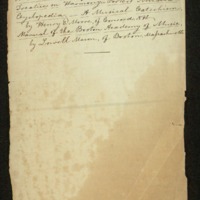 Treatise on Harmony
Cyclopedia. - A Musical Catechism
by Henry E. Moore, of Concord, N.H. -
Manual of the Boston Academy of Music,
by Lowell Mason, of Boston, Massachu